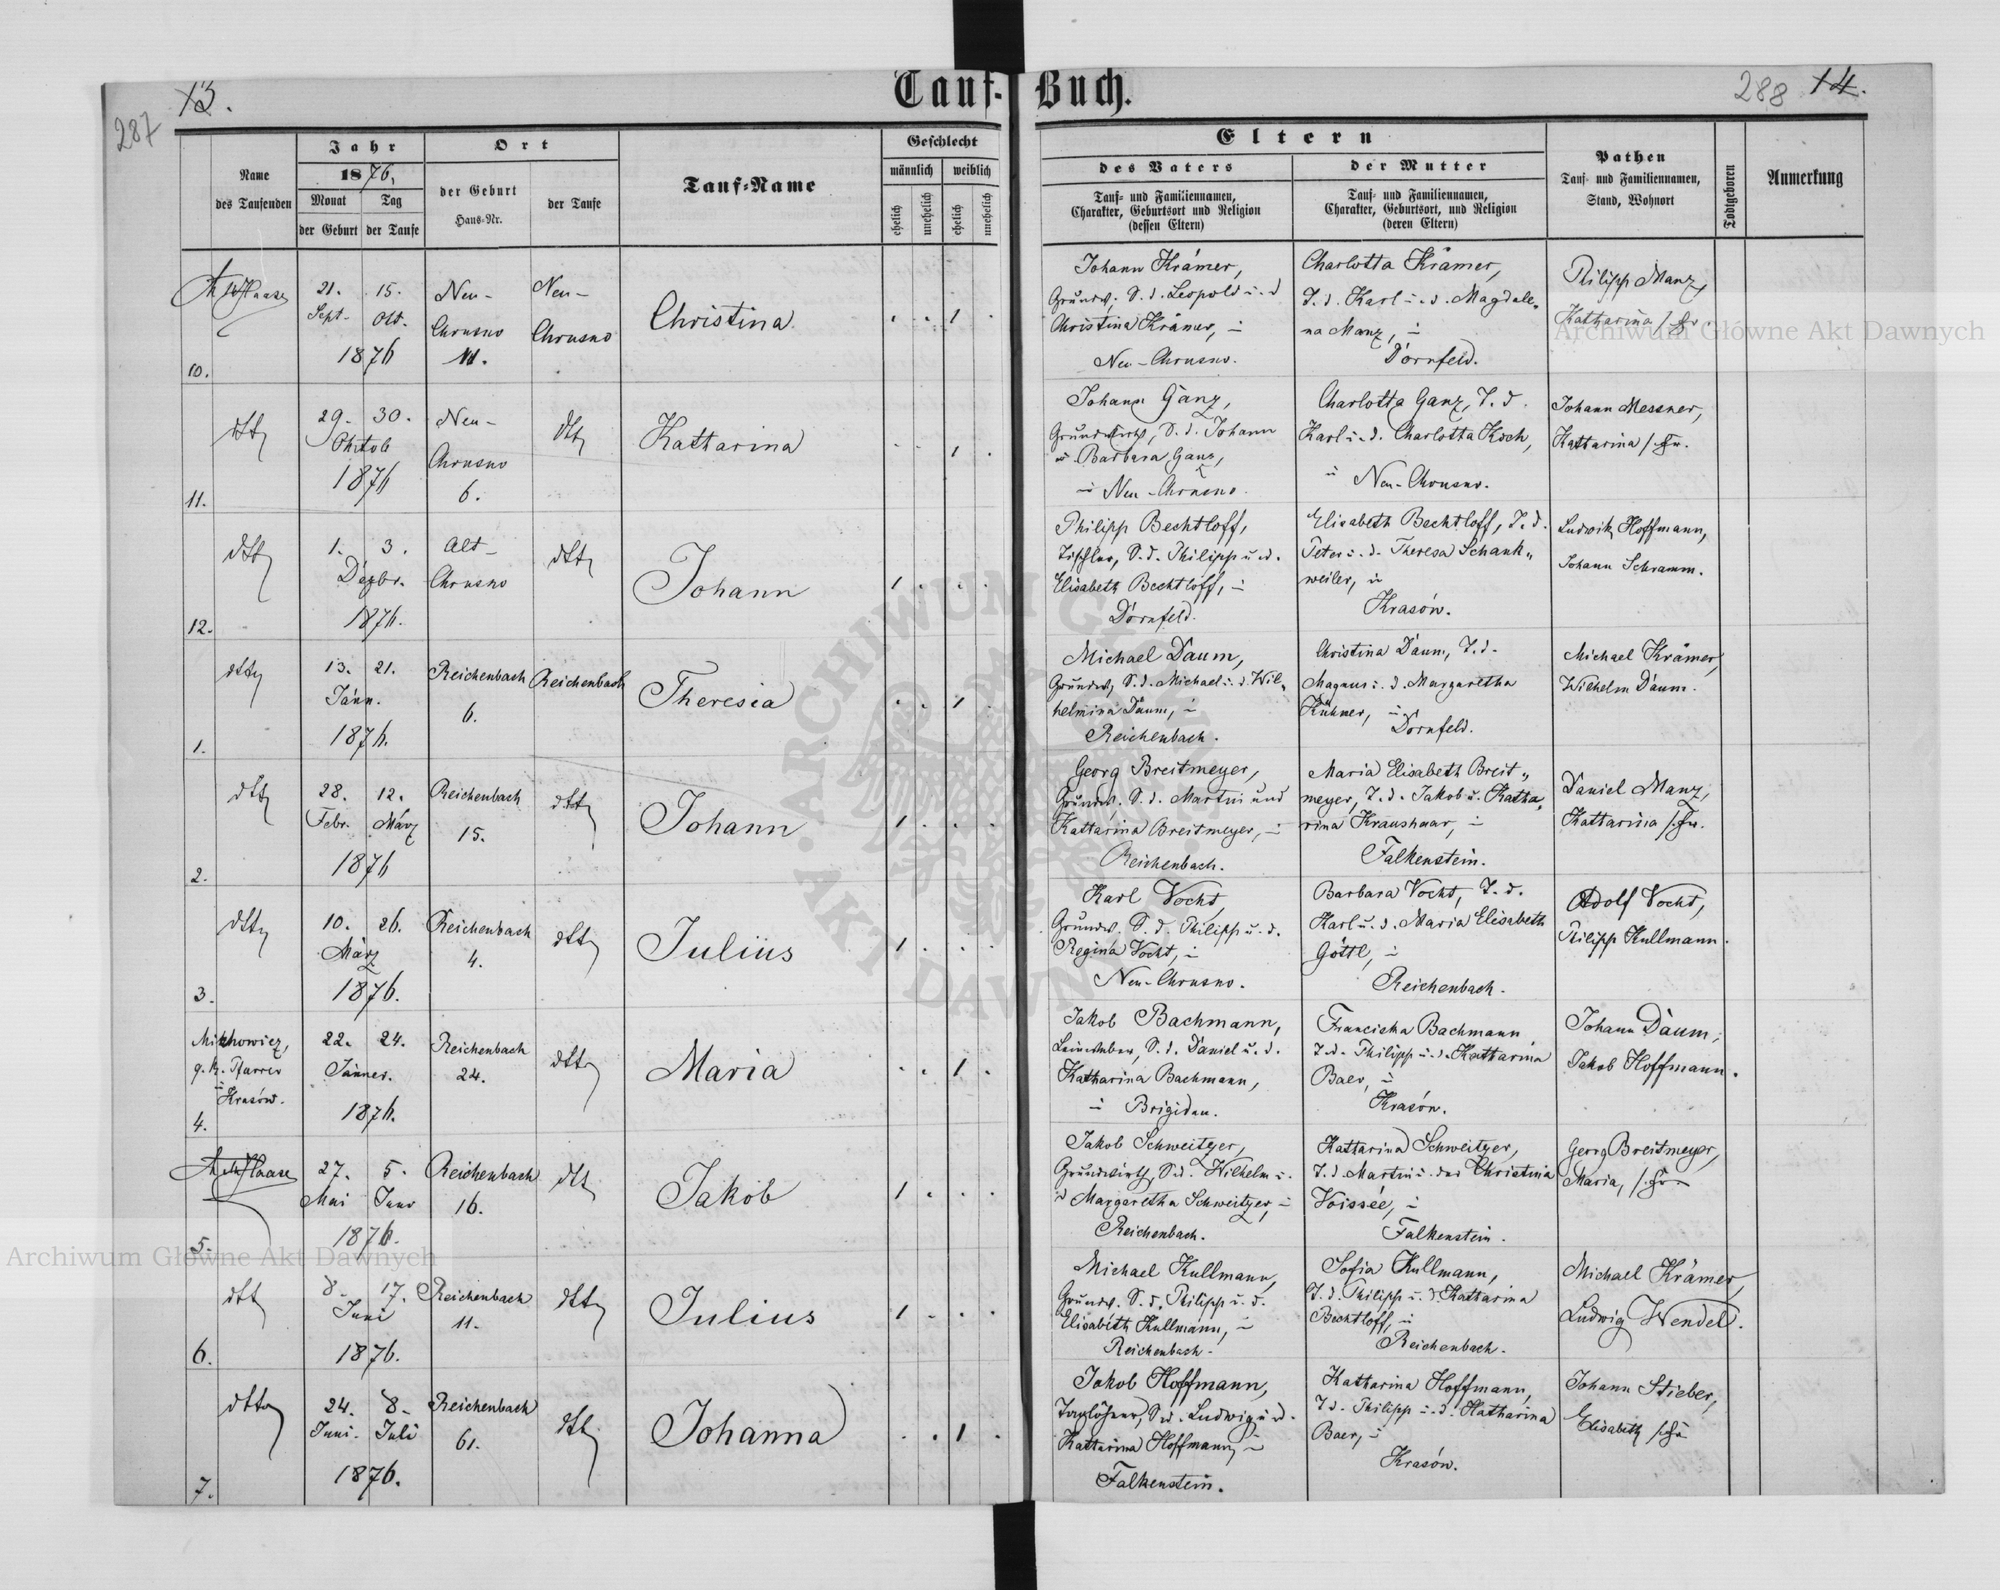 13.
287
Tauf-Buch.
288 14.
Name
des Taufenden
Jahr
1876.
Monat Tag
der Geburt der Taufe
Ort
der Geburt
Haus-Nr.
der Taufe
Tauf-Name
Geschlecht
männlich weiblich
ehelich unehelich ehelich unehelich
Eltern
des Vaters
Tauf- und Familiennamen,
Charakter, Geburtsort und Religion
(dessen Eltern)
der Mutter
Tauf- und Familiennamen,
Charakter, Geburtsort, und Religion
(deren Eltern)
Pathen
Tauf- und Familiennamen,
Stand, Wohnort
Todtgeboren
Anmerkung
10.
Haase
21. 15.
Sept. Okt.
1876
Neu-
Chrusno
11.
Neu-
Chrusno
Christina
1
Johann Krämer,
Grundw. S. d. Leopold u. d
Christina Krämer, in
Neu-Chrusno.
Charlotta Krämer,
T. d. Karl u. d. Magdale-
na Manz, in
Dornfeld.
Philipp Manz,
Katharina /. Fr.
11.
dtto
29. 30.
Oktob
1876
Neu-
Chrusno
6.
dtto
Kattarina
1
Johann Ganz,
Grundwirth, S. d. Johann
u. Barbara Ganz,
in Neu-Chrusno.
Charlotta Ganz, T. d.
Karl u. d. Charlotta Koch,
in Neu-Chrusno.
Johann Messner,
Kattarina /. Fr.
12.
dtto
1. 3.
Dezbr.
1876.
Alt-
Chrusno
dtto
Johann
1
Philipp Bechtloff,
Tischler, S. d. Philipp u. d.
Elisabeth Bechtloff, in
Dornfeld.
Elisabeth Bechtloff, T. d.
Peter u. d. Theresa Schank-
weiler, in
Krasów.
Ludwik Hoffmann,
Johann Schramm.
1.
dtto
13. 21.
Jänn.
1876.
Reichenbach
6.
Reichenbach
Theresia
1
Michael Daum,
Grundw, S. d. Michael u. d. Wil-
helmina Daum, in
Reichenbach.
Christina Daum, T. d.
Magnus u. d. Margaretha
Kühner, in
Dornfeld.
Michael Krämer,
Wilhelm Daum.
2.
dtto
28. 12.
Febr. März
1876
Reichenbach
15.
dtto
Johann
1
Georg Breitmeyer,
Grundw. S. d. Martin und
Kattarina Breitmeyer, in
Reichenbach.
Maria Elisabeth Breit-
meyer, T. d. Jakob u. Katha-
rina Kraushaar, in
Falkenstein.
Daniel Manz,
Kattarina /. Fr.
3.
dtto
10. 26.
März
1876.
Reichenbach
4.
dtto
Julius
1
Karl Vocht,
Grundw. S. d. Philipp u. d.
Regina Vocht, in
Neu-Chrusno.
Barbara Vocht, T. d.
Karl u. d. Maria Elisabeth
Göttl, in
Reichenbach.
Adolf Vocht,
Philipp Kullmann.
4.
g. k. Pfarrer
in
Krasów.
22. 24.
Jänner.
1876.
Reichenbach
24.
dtto
Maria
1
Jakob Bachmann,
Leinweber, S. d. Daniel u. d.
Katharina Bachmann,
in Brigidau.
Franciska Bachmann
T. d. Philipp u. d. Katharina
Baer, in
Krasów.
Johann Daum,
Jakob Hoffmann.
5.
Haase
27. 5.
Mai Juni
1876.
Reichenbach
16.
dtto
Jakob
1
Jakob Schweitzer,
Grundwirth, S. d. Wilhelm u.
d Margaretha Schweitzer, in
Reichenbach.
Kattarina Schweitzer,
T. d. Martin u. der Christina
Voissée, in
Falkenstein.
Georg Breitmeyer,
Maria, /. Fr
6.
dtto
8. 17.
Juni
1876.
Reichenbach
11.
dtto
Julius
1
Michael Kullmann,
Grundw. S. d. Philipp u. d.
Elisabeth Kullmann, in
Reichenbach.
Sofia Kullmann,
T. d. Philipp u. d. Katharina
Bechtloff, in
Reichenbach.
Michael Krämer,
Ludwig Wendel.
7.
dtto
24. 8.
Juni. Juli
1876.
Reichenbach
61.
dtto
Johanna
1
Jakob Hoffmann,
Taglöhner, S. d. Ludwig u. d.
Kattarina Hoffmann, in
Falkenstein.
Katharina Hoffmann,
T. d. Philipp u. d. Katharina
Baer, in
Krasów.
Johann Stieber,
Elisabeth /. Fr
Archiwum Główne Akt Dawnych
Archiwum Główne Akt Dawnych